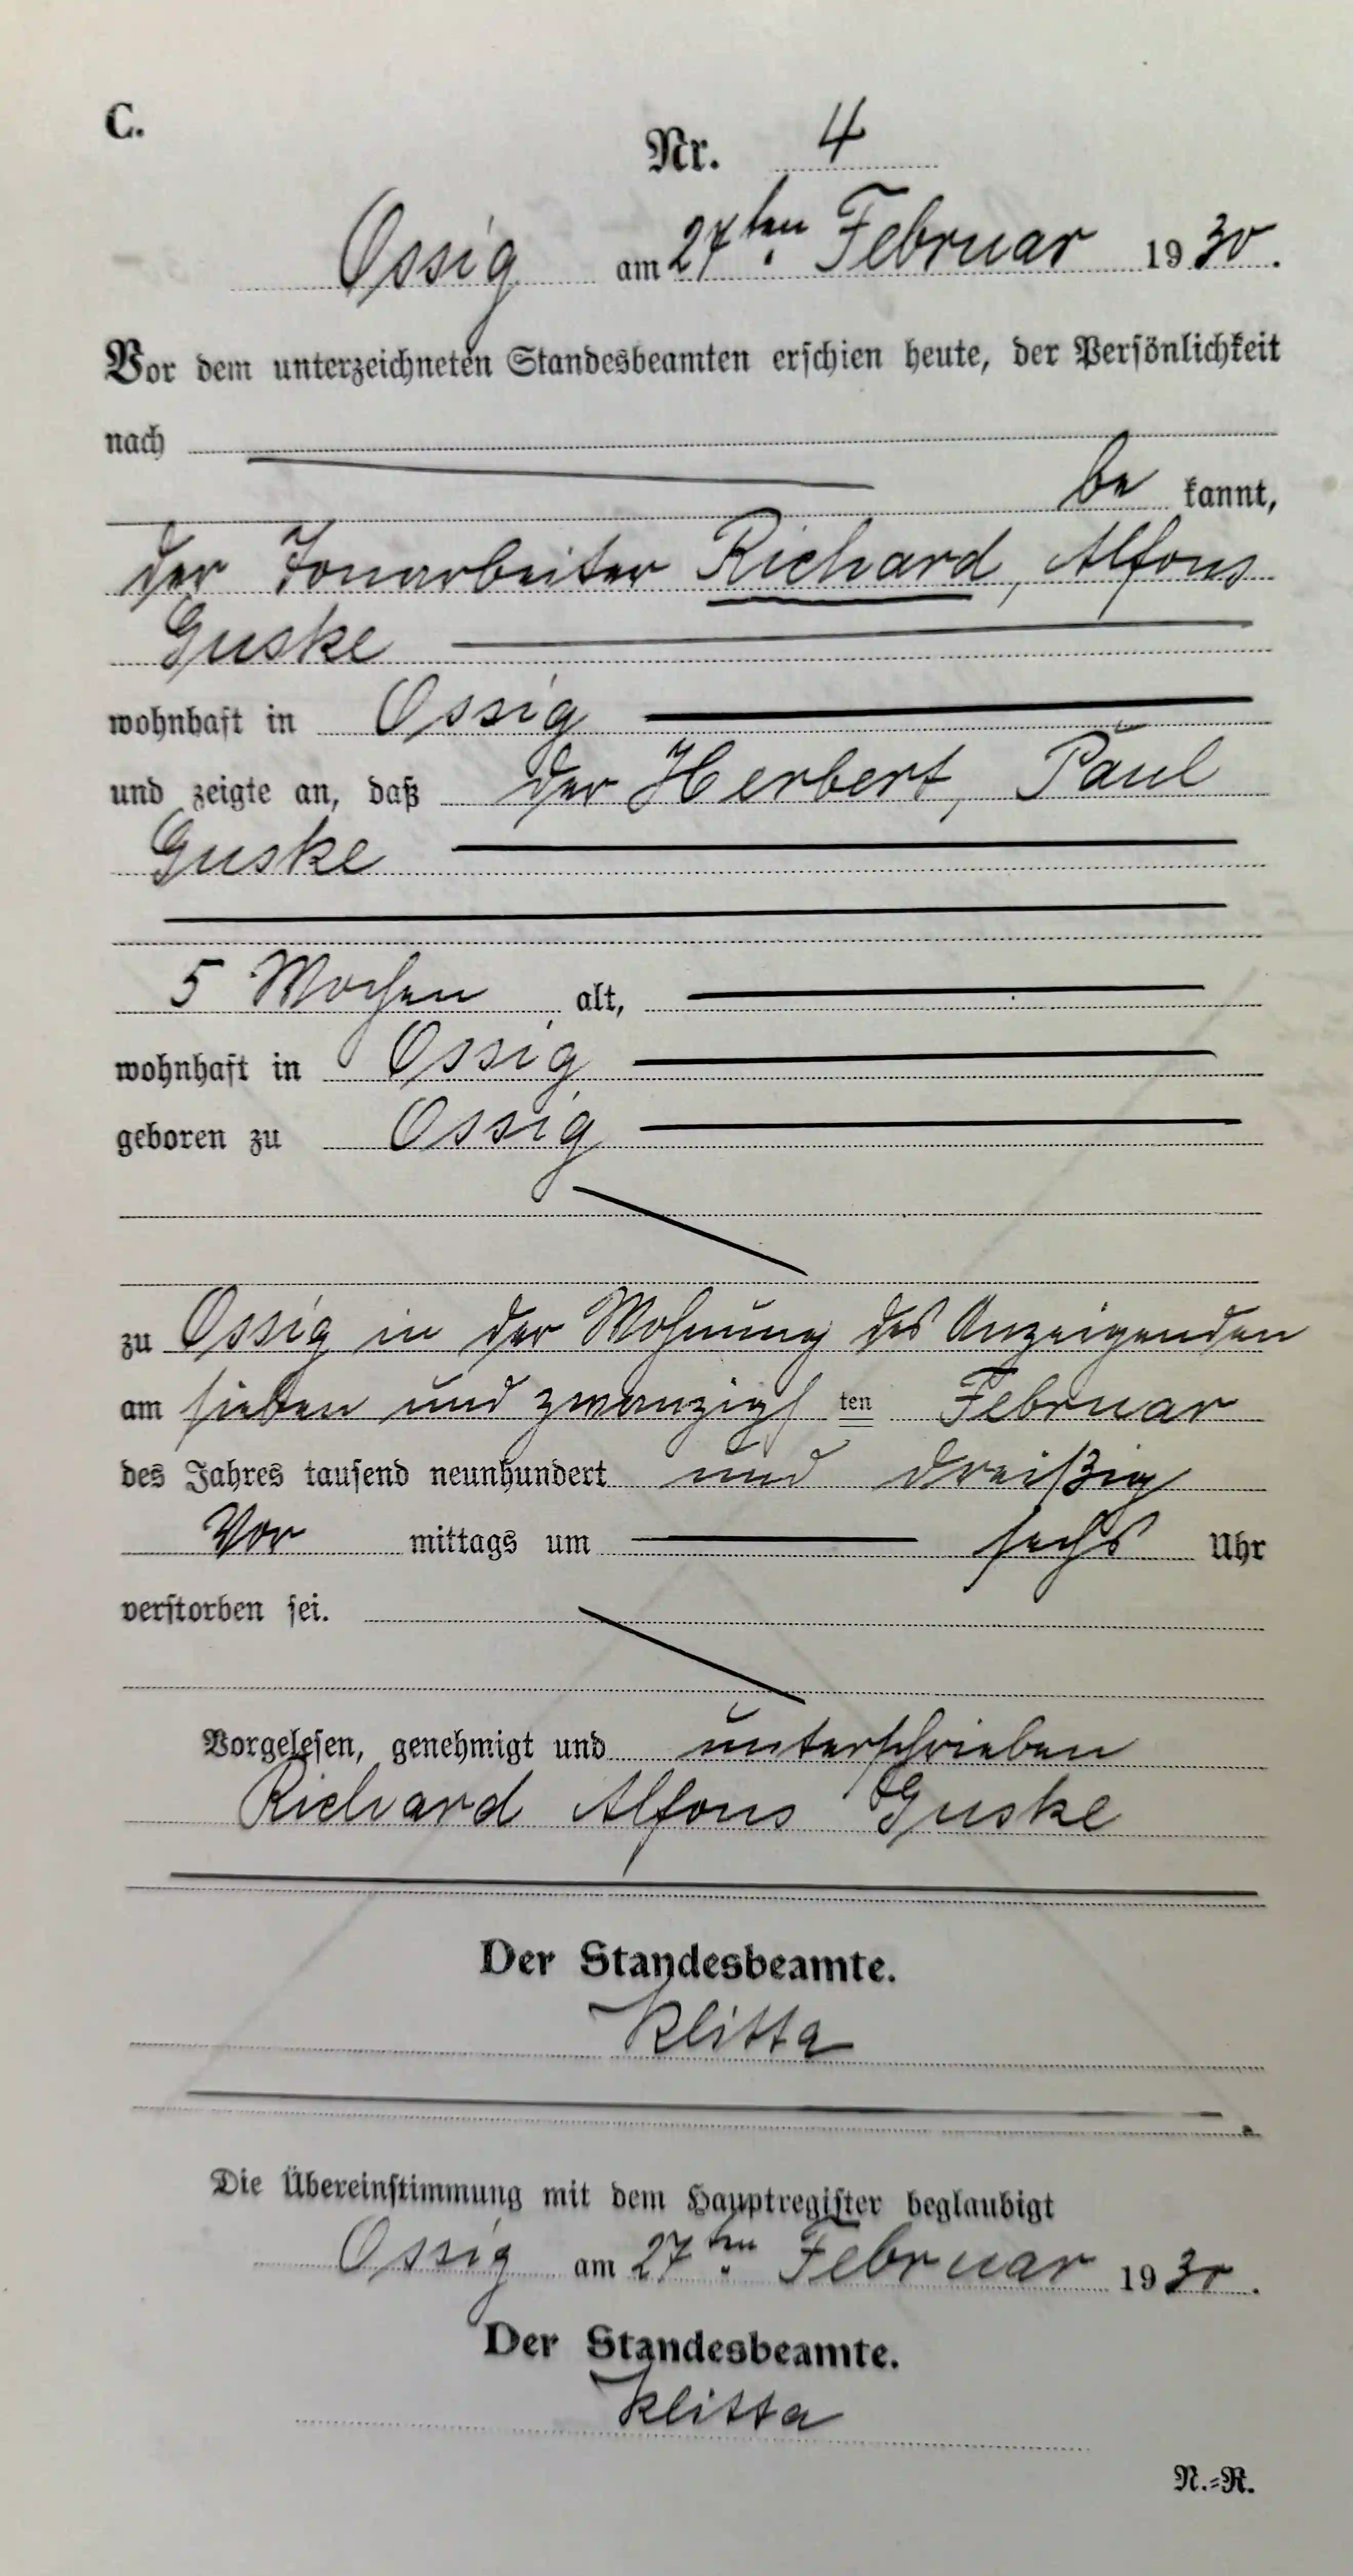 C.
Nr. 4
Ossig am 27ten Februar 1930.
Vor dem unterzeichneten Standesbeamten erschien heute, der Persönlichkeit
nach
be kannt,
der Tonarbeiter Richard, Alfons
Guske
wohnhaft in Ossig
und zeigte an, daß der Herbert, Paul
Guske
5 Wochen alt,
wohnhaft in Ossig
geboren zu Ossig
zu Ossig in der Wohnung des Anzeigenden
am sieben und zwanzigsten Februar
des Jahres tausend neunhundert und dreißig
Vor mittags um sechs Uhr
verstorben sei.
Vorgelesen, genehmigt und unterschrieben
Richard Alfons Guske
Der Standesbeamte.
Klitta
Die Übereinstimmung mit dem Hauptregister beglaubigt
Ossig am 27ten Februar 1930.
Der Standesbeamte.
Klitta
N.=R.